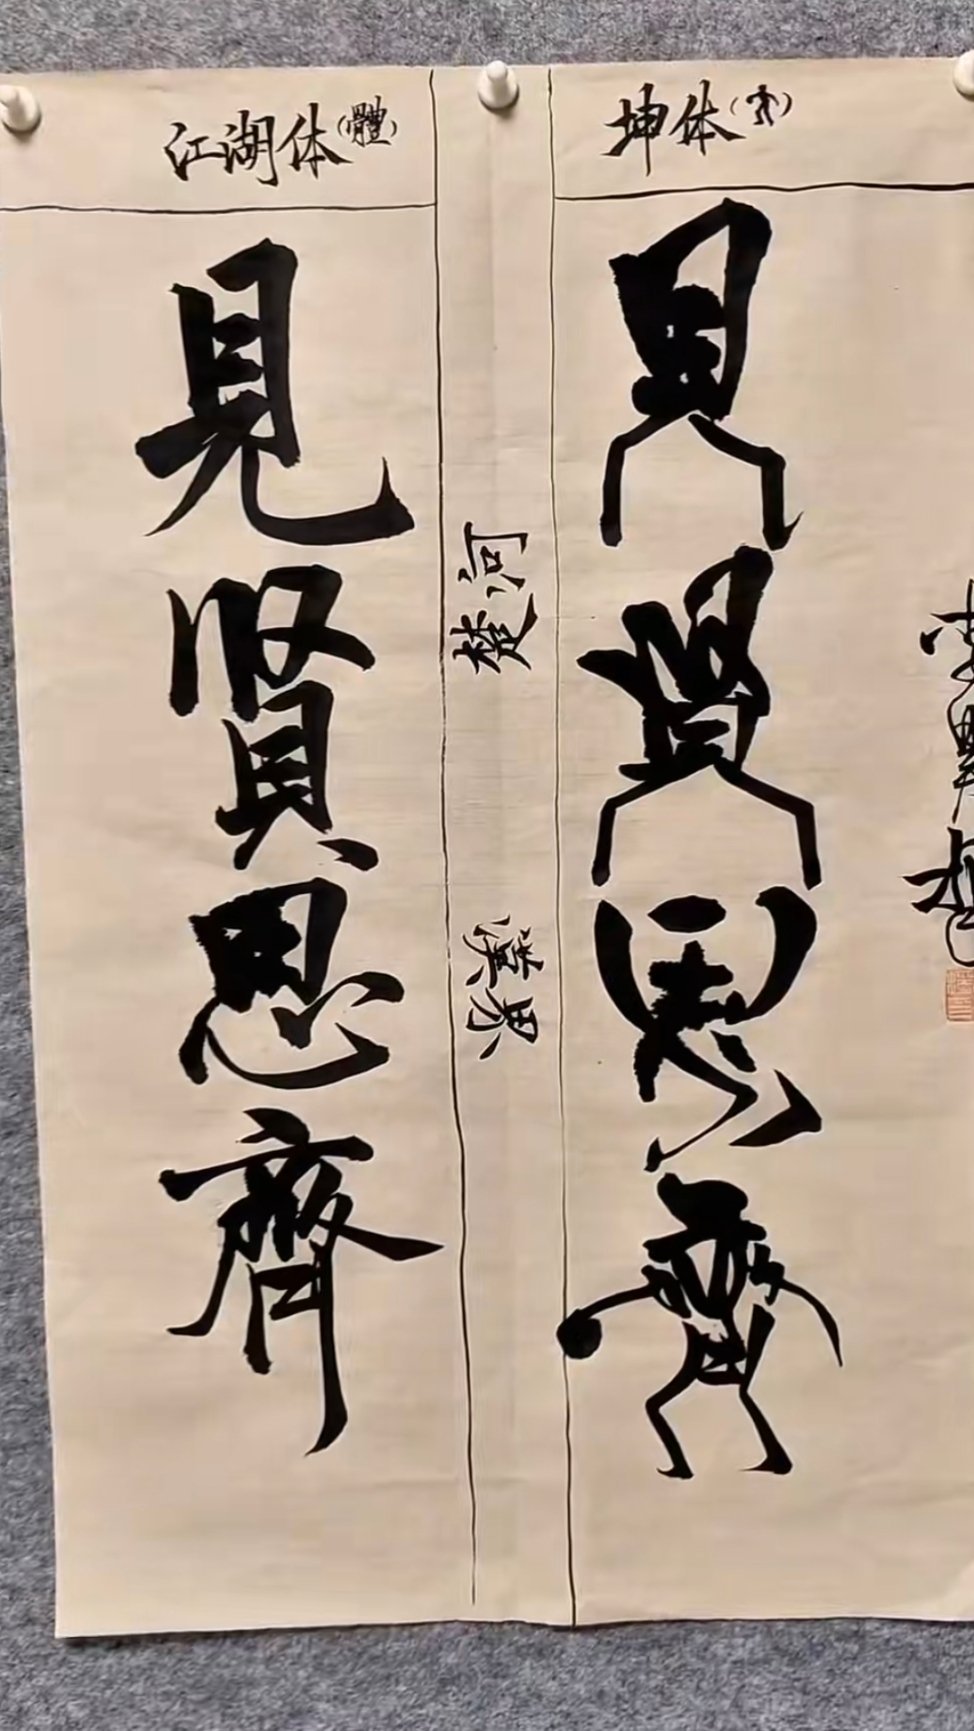 江湖体(體)
見賢思齊
楚河
漢界
坤体
見賢思齊